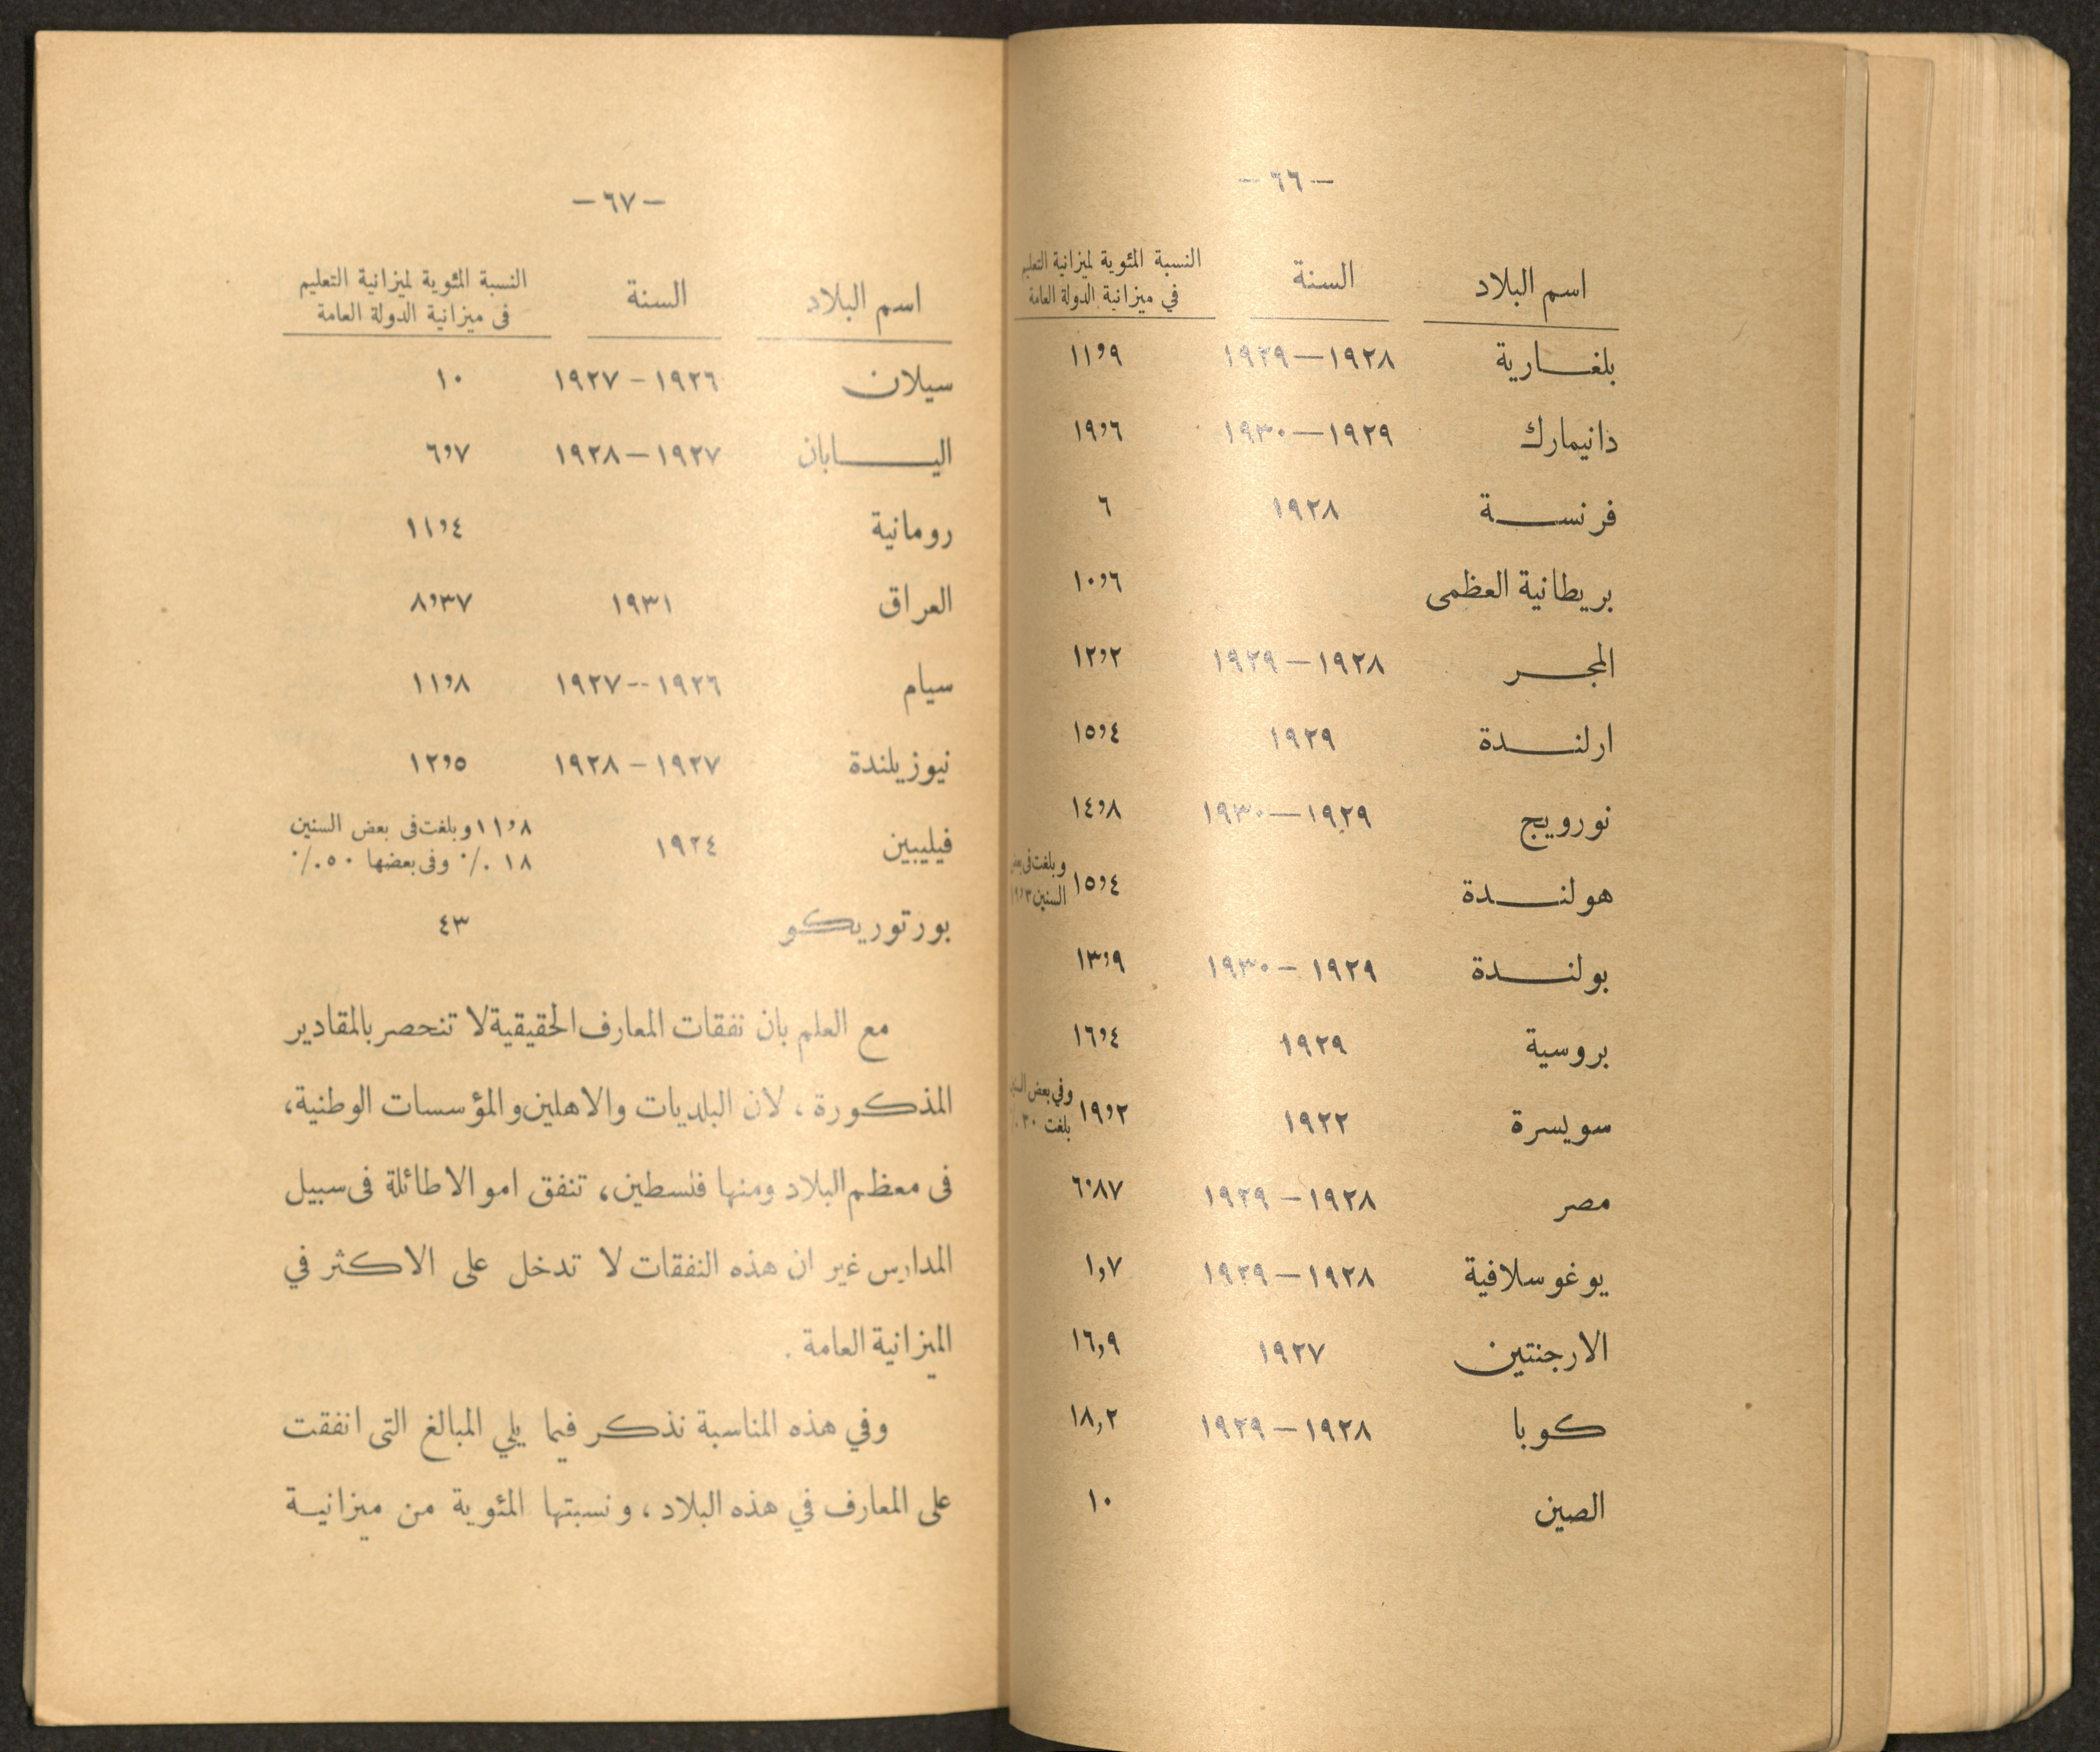 — ٦٦ —
اسم البلاد السنة النسبة المئوية لميزانية التعليم
في ميزانية الدولة العامة
بلغـــارية ١٩٢٨—١٩٢٩ ١١٫٩
دانيمارك ١٩٢٩—١٩٣٠ ١٩٫٦
فرنســـة ١٩٢٨ ٦
بريطانية العظمى ١٠٫٦
المجـــر ١٩٢٨—١٩٢٩ ١٢٫٢
ارلنـــدة ١٩٢٩ ١٥٫٤
نورويج ١٩٢٩—١٩٣٠ ١٤٫٨
هولنـــدة ١٥٫٤ وبلغت فى
السنين
بولنـــدة ١٩٢٩—١٩٣٠ ١٣٫٩
بروسية ١٩٢٩ ١٦٫٤
سويسرة ١٩٢٢ ١٩٫٢ وفي بعض
بلغت ٣٠
مصر ١٩٢٨—١٩٢٩ ٦٫٨٧
يوغوسلافية ١٩٢٨—١٩٢٩ ١,٧
الارجنتين ١٩٢٧ ١٦,٩
كوبا ١٩٢٨—١٩٢٩ ١٨,٢
الصين ١٠
— ٦٧ —
اسم البلاد السنة النسبة المئوية لميزانية التعليم
فى ميزانية الدولة العامة
سيلان ١٩٢٦—١٩٢٧ ١٠
اليـــابان ١٩٢٧—١٩٢٨ ٦٫٧
رومانية ١١٫٤
العراق ١٩٣١ ٨٫٣٧
سيام ١٩٢٦--١٩٢٧ ١١٫٨
نيوزيلندة ١٩٢٧—١٩٢٨ ١٢٫٥
فيليبين ١٩٢٤ ١١٫٨ وبلغت فى بعض السنين
١٨ ٪ وفى بعضها ٥٠ ٪
بورتوريكو ٤٣
مع العلم بان نفقات المعارف الحقيقية لا تنحصر بالمقادير
المذكورة ، لان البلديات والاهلين والمؤسسات الوطنية،
فى معظم البلاد ومنها فلسطين، تنفق اموالا طائلة فى سبيل
المدارس غير ان هذه النفقات لا تدخل على الاكثر في
الميزانية العامة .
وفي هذه المناسبة نذكر فيما يلي المبالغ التى انفقت
على المعارف في هذه البلاد ، ونسبتها المئوية من ميزانيـة